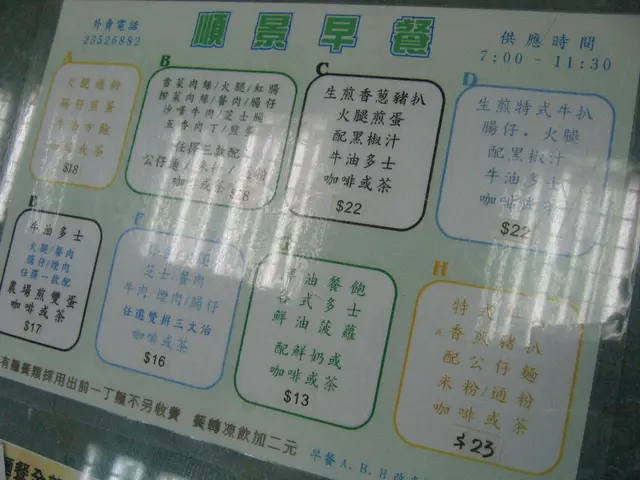 外賣電話
23526882
順景早餐
供應時間
7:00 - 11:30
A
火腿通粉
腸仔煎蛋
牛油方飽
咖啡或茶
$18
B
雪菜肉絲/火腿/紅腸
榨菜肉絲/餐肉/腸仔
沙嗲牛肉/芝士焗
五香肉丁/煎蛋
任擇二款配
公仔麵
咖啡或茶
C
生煎香蔥豬扒
火腿煎蛋
配黑椒汁
牛油多士
咖啡或茶
$22
D
生煎特式牛扒
腸仔。火腿
配黑椒汁
牛油多士
咖啡或茶
$22
E
牛油多士
火腿/餐肉
腸仔/煙肉
任擇一款配
農場煎雙蛋
咖啡或茶
$17
F
芝士餐肉
牛肉 煙肉/腸仔
任選雙拼三文治
咖啡或茶
$16
油餐飽
式多士
鮮油菠蘿
配鮮奶或
咖啡或茶
$13
H
特式
香煎豬扒
配公仔麵
米粉/通粉
咖啡或茶
$23
有麵餐類採用出前一丁麵不另收費 餐轉凍飲加二元
早餐 A、B、B